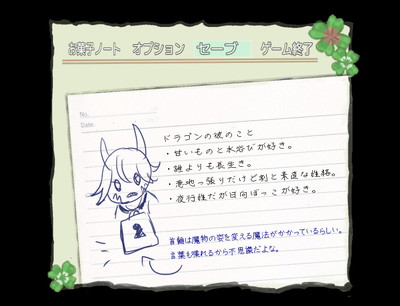 お菓子ノート オプション セーブ ゲーム終了
No.
Date.
ドラゴンの彼のこと
・甘いものと水浴びが好き。
・誰よりも長生き。
・意地っ張りだけど割と素直な性格。
・夜行性だが日向ぼっこが好き。
首輪は魔物の姿を変える魔法がかかっているらしい。
言葉も喋れるから不思議だよな。